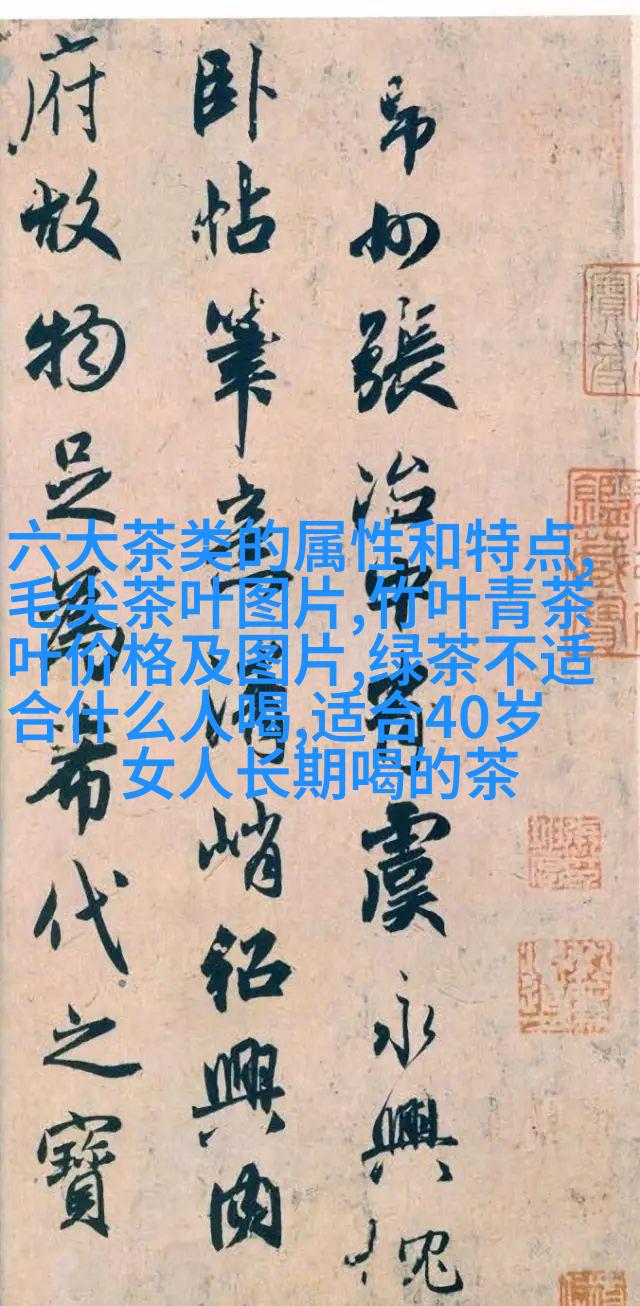 常州張治中有虞永興枕
臥帖筆意清峭紹興内
府故物足為希代之寶
六大茶类的属性和特点,
毛尖茶叶图片,竹叶青茶
叶价格及图片,绿茶不适
合什么人喝,适合40岁
女人长期喝的茶